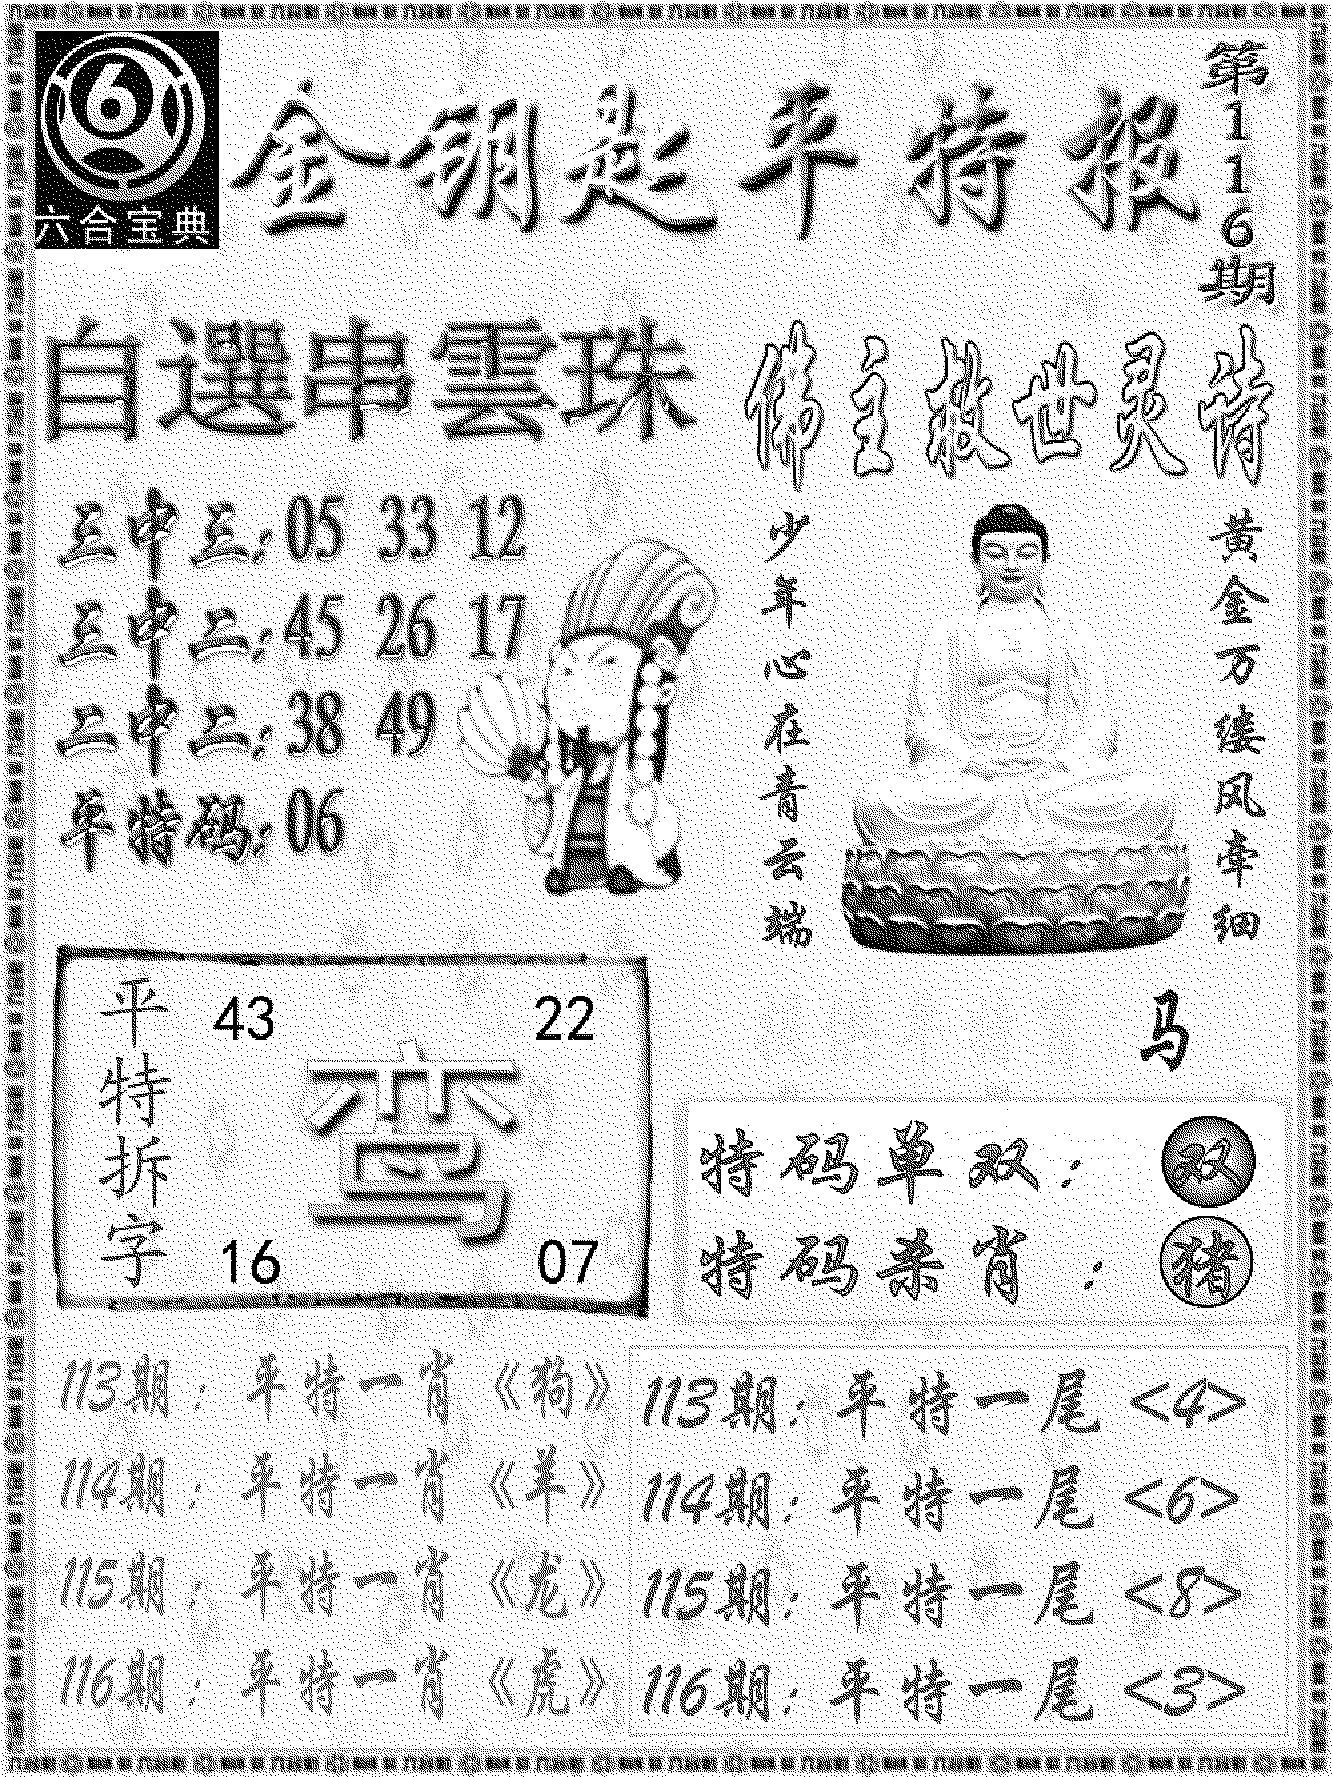 六合宝典
金钥匙平特报
第116期
自選串雲珠
三中三:05 33 12
三中二:45 26 17
二中二:38 49
平特码:06
佛主救世灵诗
黄金万缕风牵细
少年心在青云端
马
平特拆字
43 22
鸾
16 07
特码单双：双
特码杀肖：猪
113期：平特一肖《狗》
114期：平特一肖《羊》
115期：平特一肖《龙》
116期：平特一肖《虎》
113期：平特一尾<4>
114期：平特一尾<6>
115期：平特一尾<8>
116期：平特一尾<3>